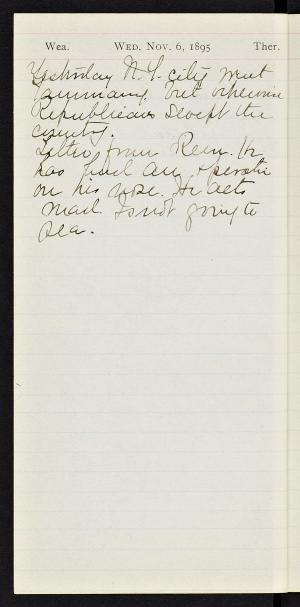 Wea. WED. NOV. 6, 1895 Ther.
Yesterday N.Y. city went
Tammany but otherwise
Republicans swept the
country.
Letter from Rein. He
has had an operatn
on his nose. He acts
mad. Is not going to
sea.